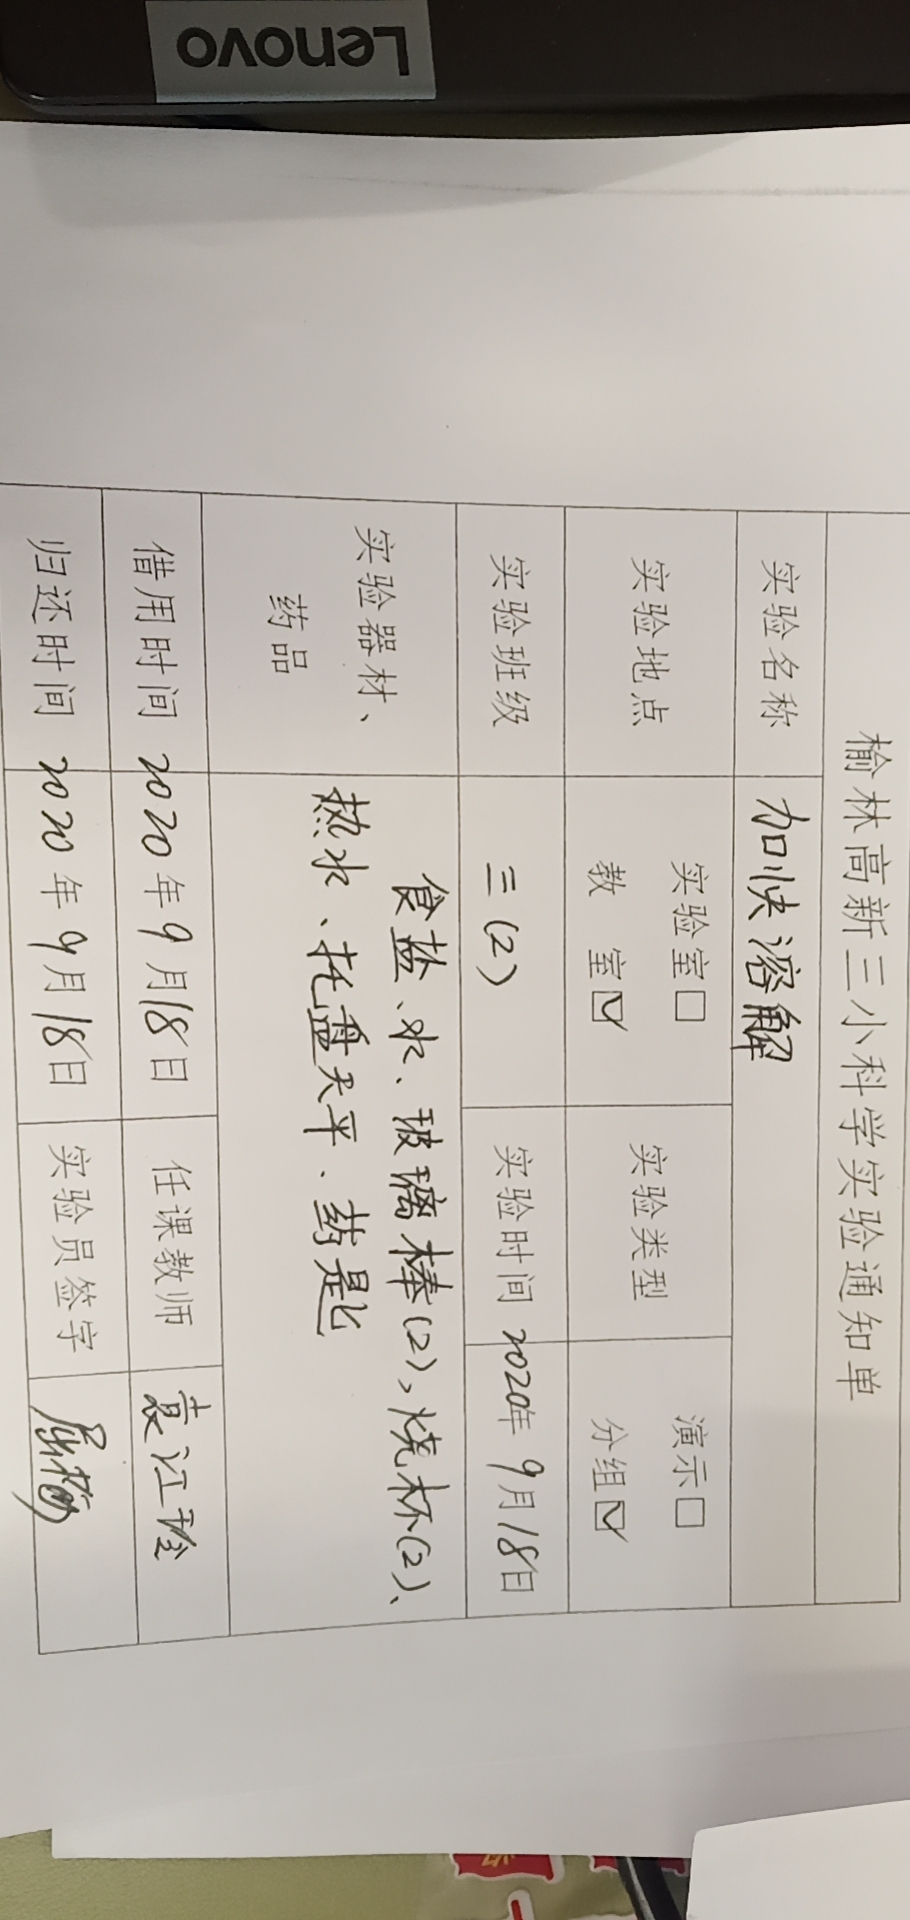 Lenovo
榆林高新三小科学实验通知单
实验名称 加快溶解
实验地点 实验室□ 教 室☑ 实验类型 演示□ 分组☑
实验班级 三(2) 实验时间 2020年9月18日
实验器材、药品 食盐、水、玻璃棒(2)、烧杯(2)、
热水、托盘天平、药匙
借用时间 2020年9月18日 任课教师 袁江玲
归还时间 2020年9月18日 实验员签字